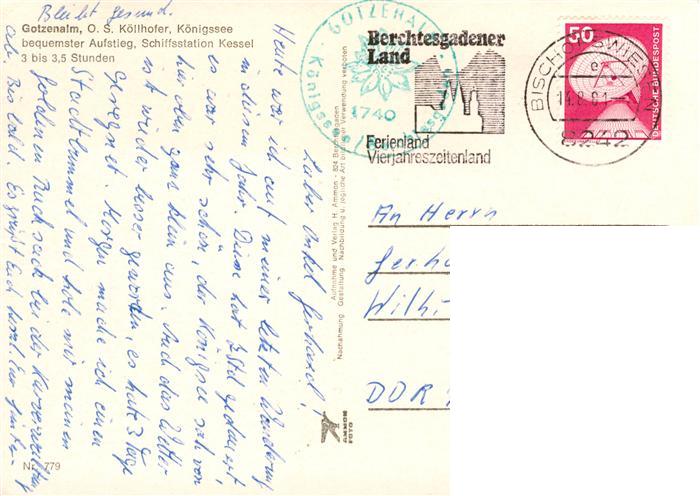 Bleibt gesund.
Gotzenalm, O. S. Köllhofer, Königssee
bequemster Aufstieg, Schiffsstation Kessel
3 bis 3,5 Stunden
Lieber Onkel Gerhard!
Heute war ich auf meiner letzten Wanderung
in diesem Jahr. Diese hat 3 Std gedauert
es war sehr schön, der Königssee sah von
hier oben ganz klein aus. Und das Wetter
ist wieder besser geworden, es hatte 3 Tage
geregnet. Morgen mache ich einen
Stadtbummel und hole mir meinen
Rucksack bei der Kurverwaltung
ab. Bis bald. Es grüßt Euch herzl.
Nr. 779
GOTZENALM
1740
Königssee
Aufnahme und Verlag H. Ammon - 824 Berchtesgaden
Nachahmung Gestaltung Nachbildung u. jegliche Art der Verwendung verboten
AMMON
FOTO
Berchtesgadener
Land
Ferienland
Vierjahreszeitenland
BISCHOFSWIESEN
8242
50
DEUTSCHE BUNDESPOST
An Herrn
Gerh
Wilh
DDR